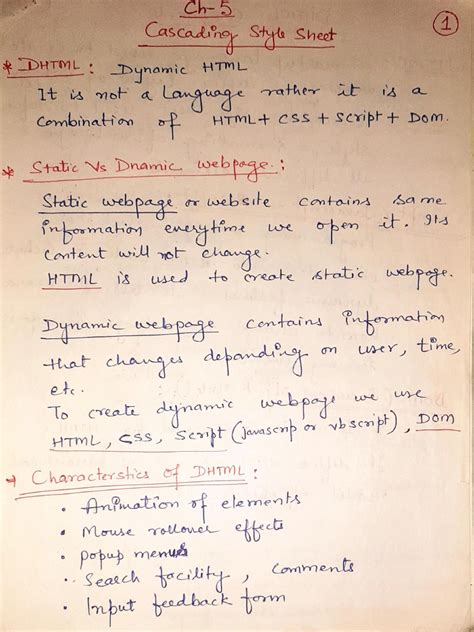 Ch-5
1
Cascading Style Sheet
* DHTML : Dynamic HTML
It is not a Language rather it is a
Combination of HTML + CSS + Script + DOM.
* Static Vs Dnamic webpage :
Static webpage or website contains same
information everytime we open it. Its
content will not change.
HTML is used to create static webpage.
Dynamic webpage contains information
that changes depanding on user, time,
etc.
To create dynamic webpage we use
HTML, CSS, Script (javascrip or vbscript), DOM
Characterstics of DHTML :
• Animation of elements
• Mouse rollover effects
• popup menus
• Search facility, comments
• Input feedback form